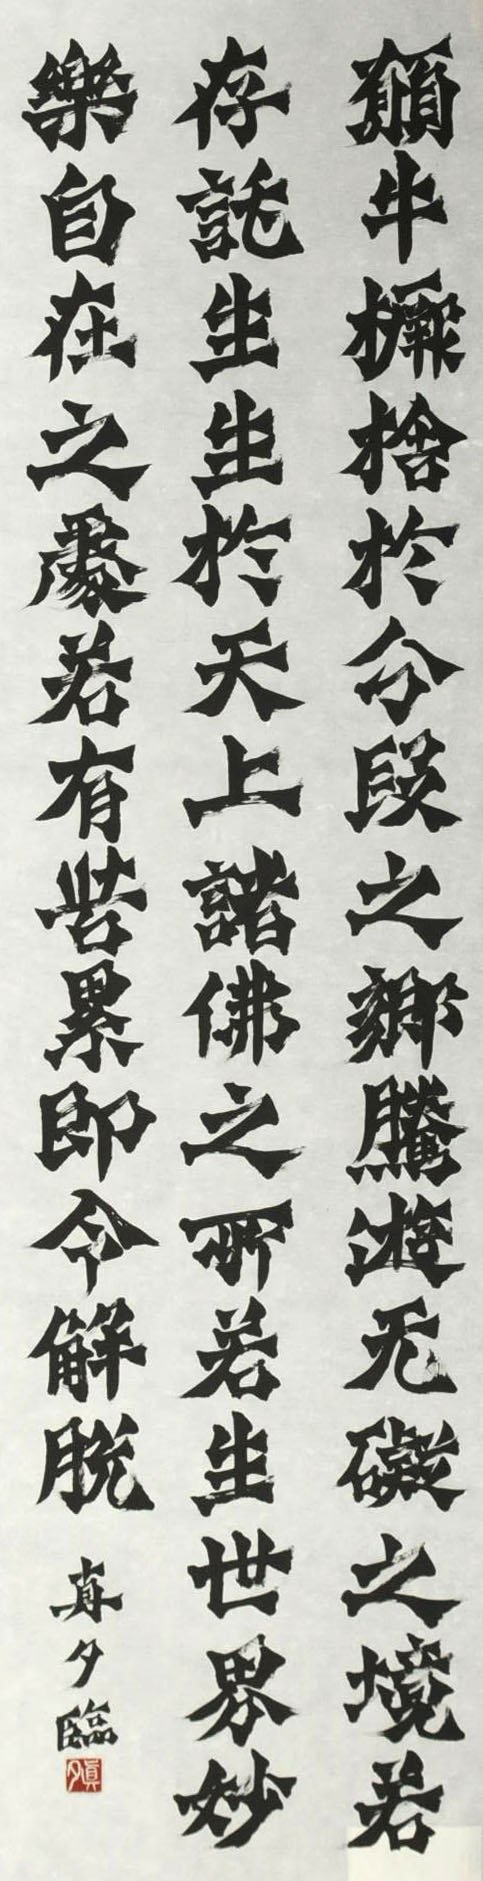 願牛橛捨於分段之鄉騰遊无礙之境若
存託生生於天上諸佛之所若生世界妙
樂自在之處若有苦累即令解脫
真夕臨